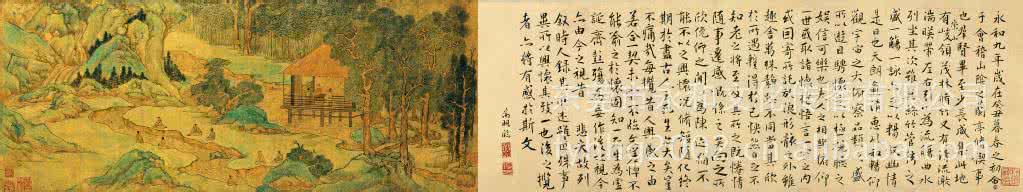 永和九年歲在癸丑暮春之初會
于會稽山陰之蘭亭脩禊事
也羣賢畢至少長咸集此地
有崇山峻領茂林脩竹又有清流激
湍暎帶左右引以為流觴曲水
列坐其次雖無絲竹管弦之
盛一觴一詠亦足以暢叙幽情
是日也天朗氣清惠風和暢仰
觀宇宙之大俯察品類之盛
所以遊目騁懷足以極視聽之
娛信可樂也夫人之相與俯仰
一世或取諸懷抱悟言一室之內
或因寄所託放浪形骸之外雖
趣舍萬殊靜躁不同當其欣
於所遇暫得於己快然自足不
知老之將至及其所之既惓情
隨事遷感慨係之矣向之所
欣俛仰之間以為陳迹猶不
能不以之興懷況脩短隨化終
期於盡古人云死生亦大矣豈
不痛哉每攬昔人興感之由
若合一契未嘗不臨文嗟悼不
能喻之於懷固知一死生為虛
誕齊彭殤為妄作後之視今
亦由今之視昔悲夫故列
叙時人錄其所述雖世殊事
異所以興懷其致一也後之攬
者亦將有感於斯文